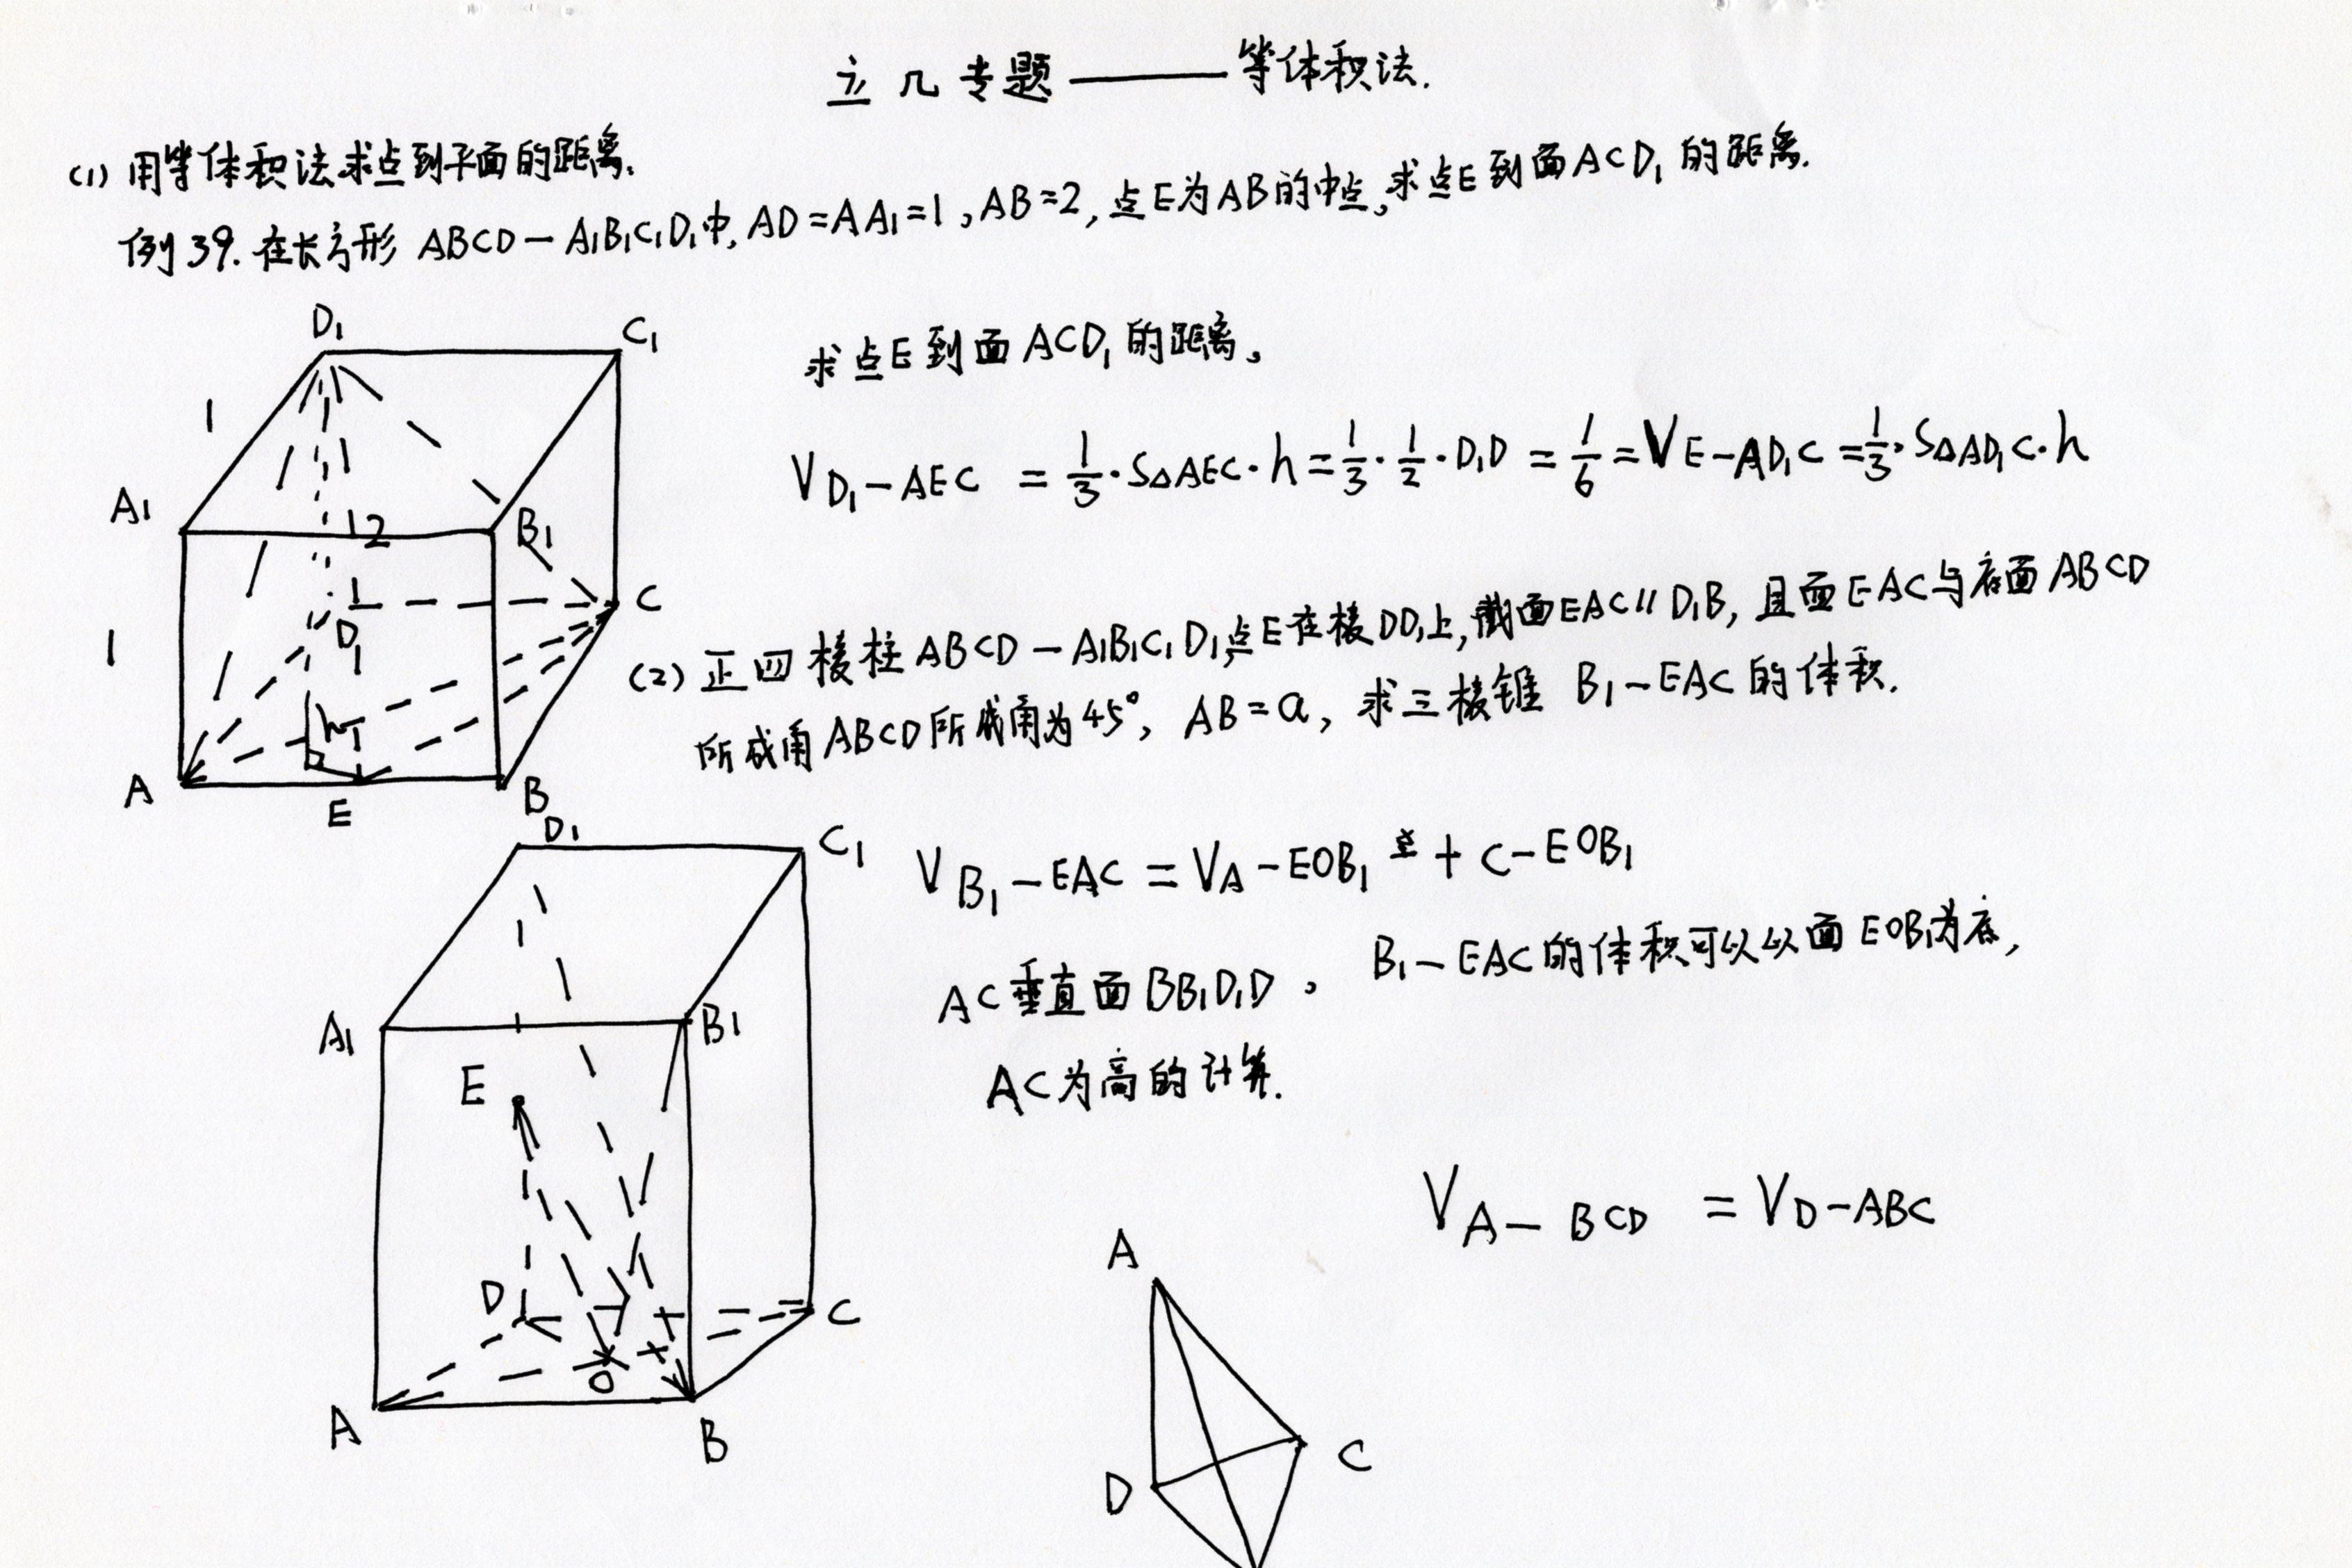 立几专题——等体积法.
(1) 用等体积法求点到平面的距离.
例39. 在长方形 ABCD-A₁B₁C₁D₁中, AD=AA₁=1, AB=2, 点E为AB的中点, 求点E到面ACD₁的距离.
D₁
C₁
1
A₁
2
B₁
1
D
1
C
h
A
E
B
求点E到面ACD₁的距离。
V D₁-AEC = 1/3·S△AEC·h = 1/3·1/2·D₁D = 1/6 = V E-AD₁C = 1/3·S△AD₁C·h
(2) 正四棱柱ABCD-A₁B₁C₁D₁, 点E在棱DD₁上, 截面EAC∥D₁B, 且面EAC与底面ABCD
所成角ABCD所成角为45°, AB=a, 求三棱锥 B₁-EAC的体积.
D₁
C₁
A₁
B₁
E
D
C
O
A
B
V B₁-EAC = V A-EOB₁ + C-EOB₁
AC垂直面BB₁D₁D。 B₁-EAC的体积可以以面EOB₁为底,
AC为高的计算.
V A-BCD = V D-ABC
A
D
C